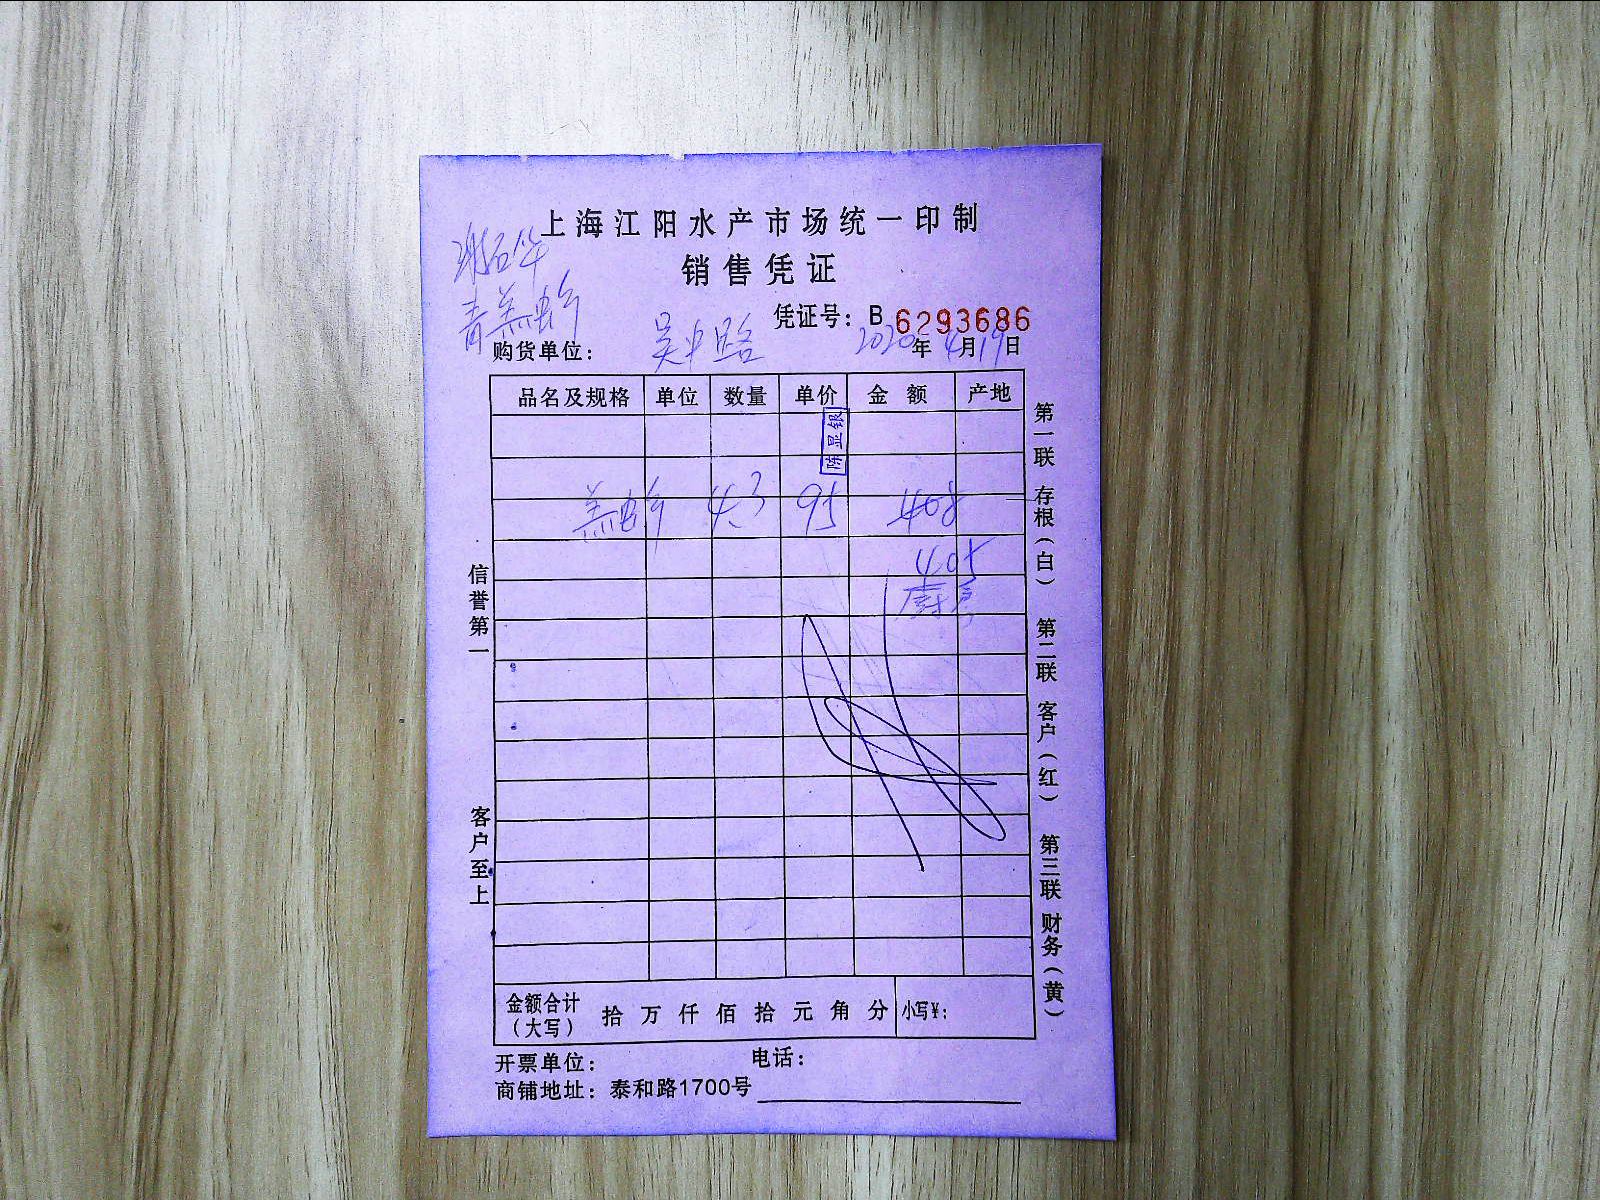 上海江阳水产市场统一印制
销售凭证
凭证号：B 6293686
购货单位： 吴中路 2020年4月19日
品名及规格 单位 数量 单价 金额 产地
陈显银
4.3 95 408
405
信誉第一
客户至上
第一联 存根（白） 第二联 客户（红） 第三联 财务（黄）
金额合计（大写） 拾 万 仟 佰 拾 元 角 分 小写¥：
开票单位： 电话：
商铺地址：泰和路1700号